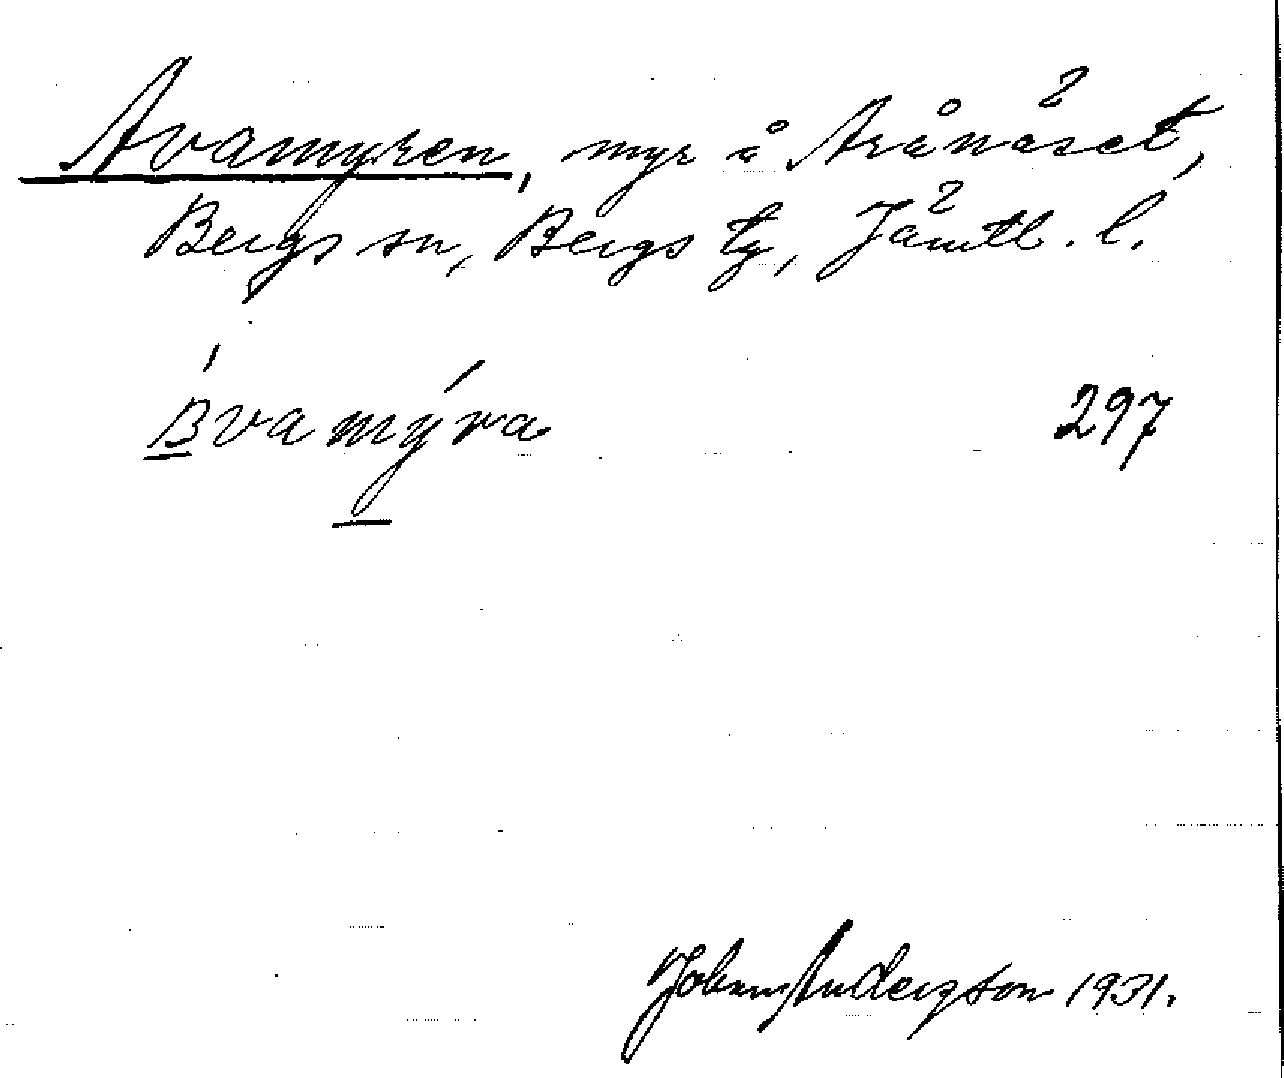 Avamyren, myr å Arånäset,
Bergs sn, Bergs tg, Jämtl. l.
297
Johan Anderzson 1931.